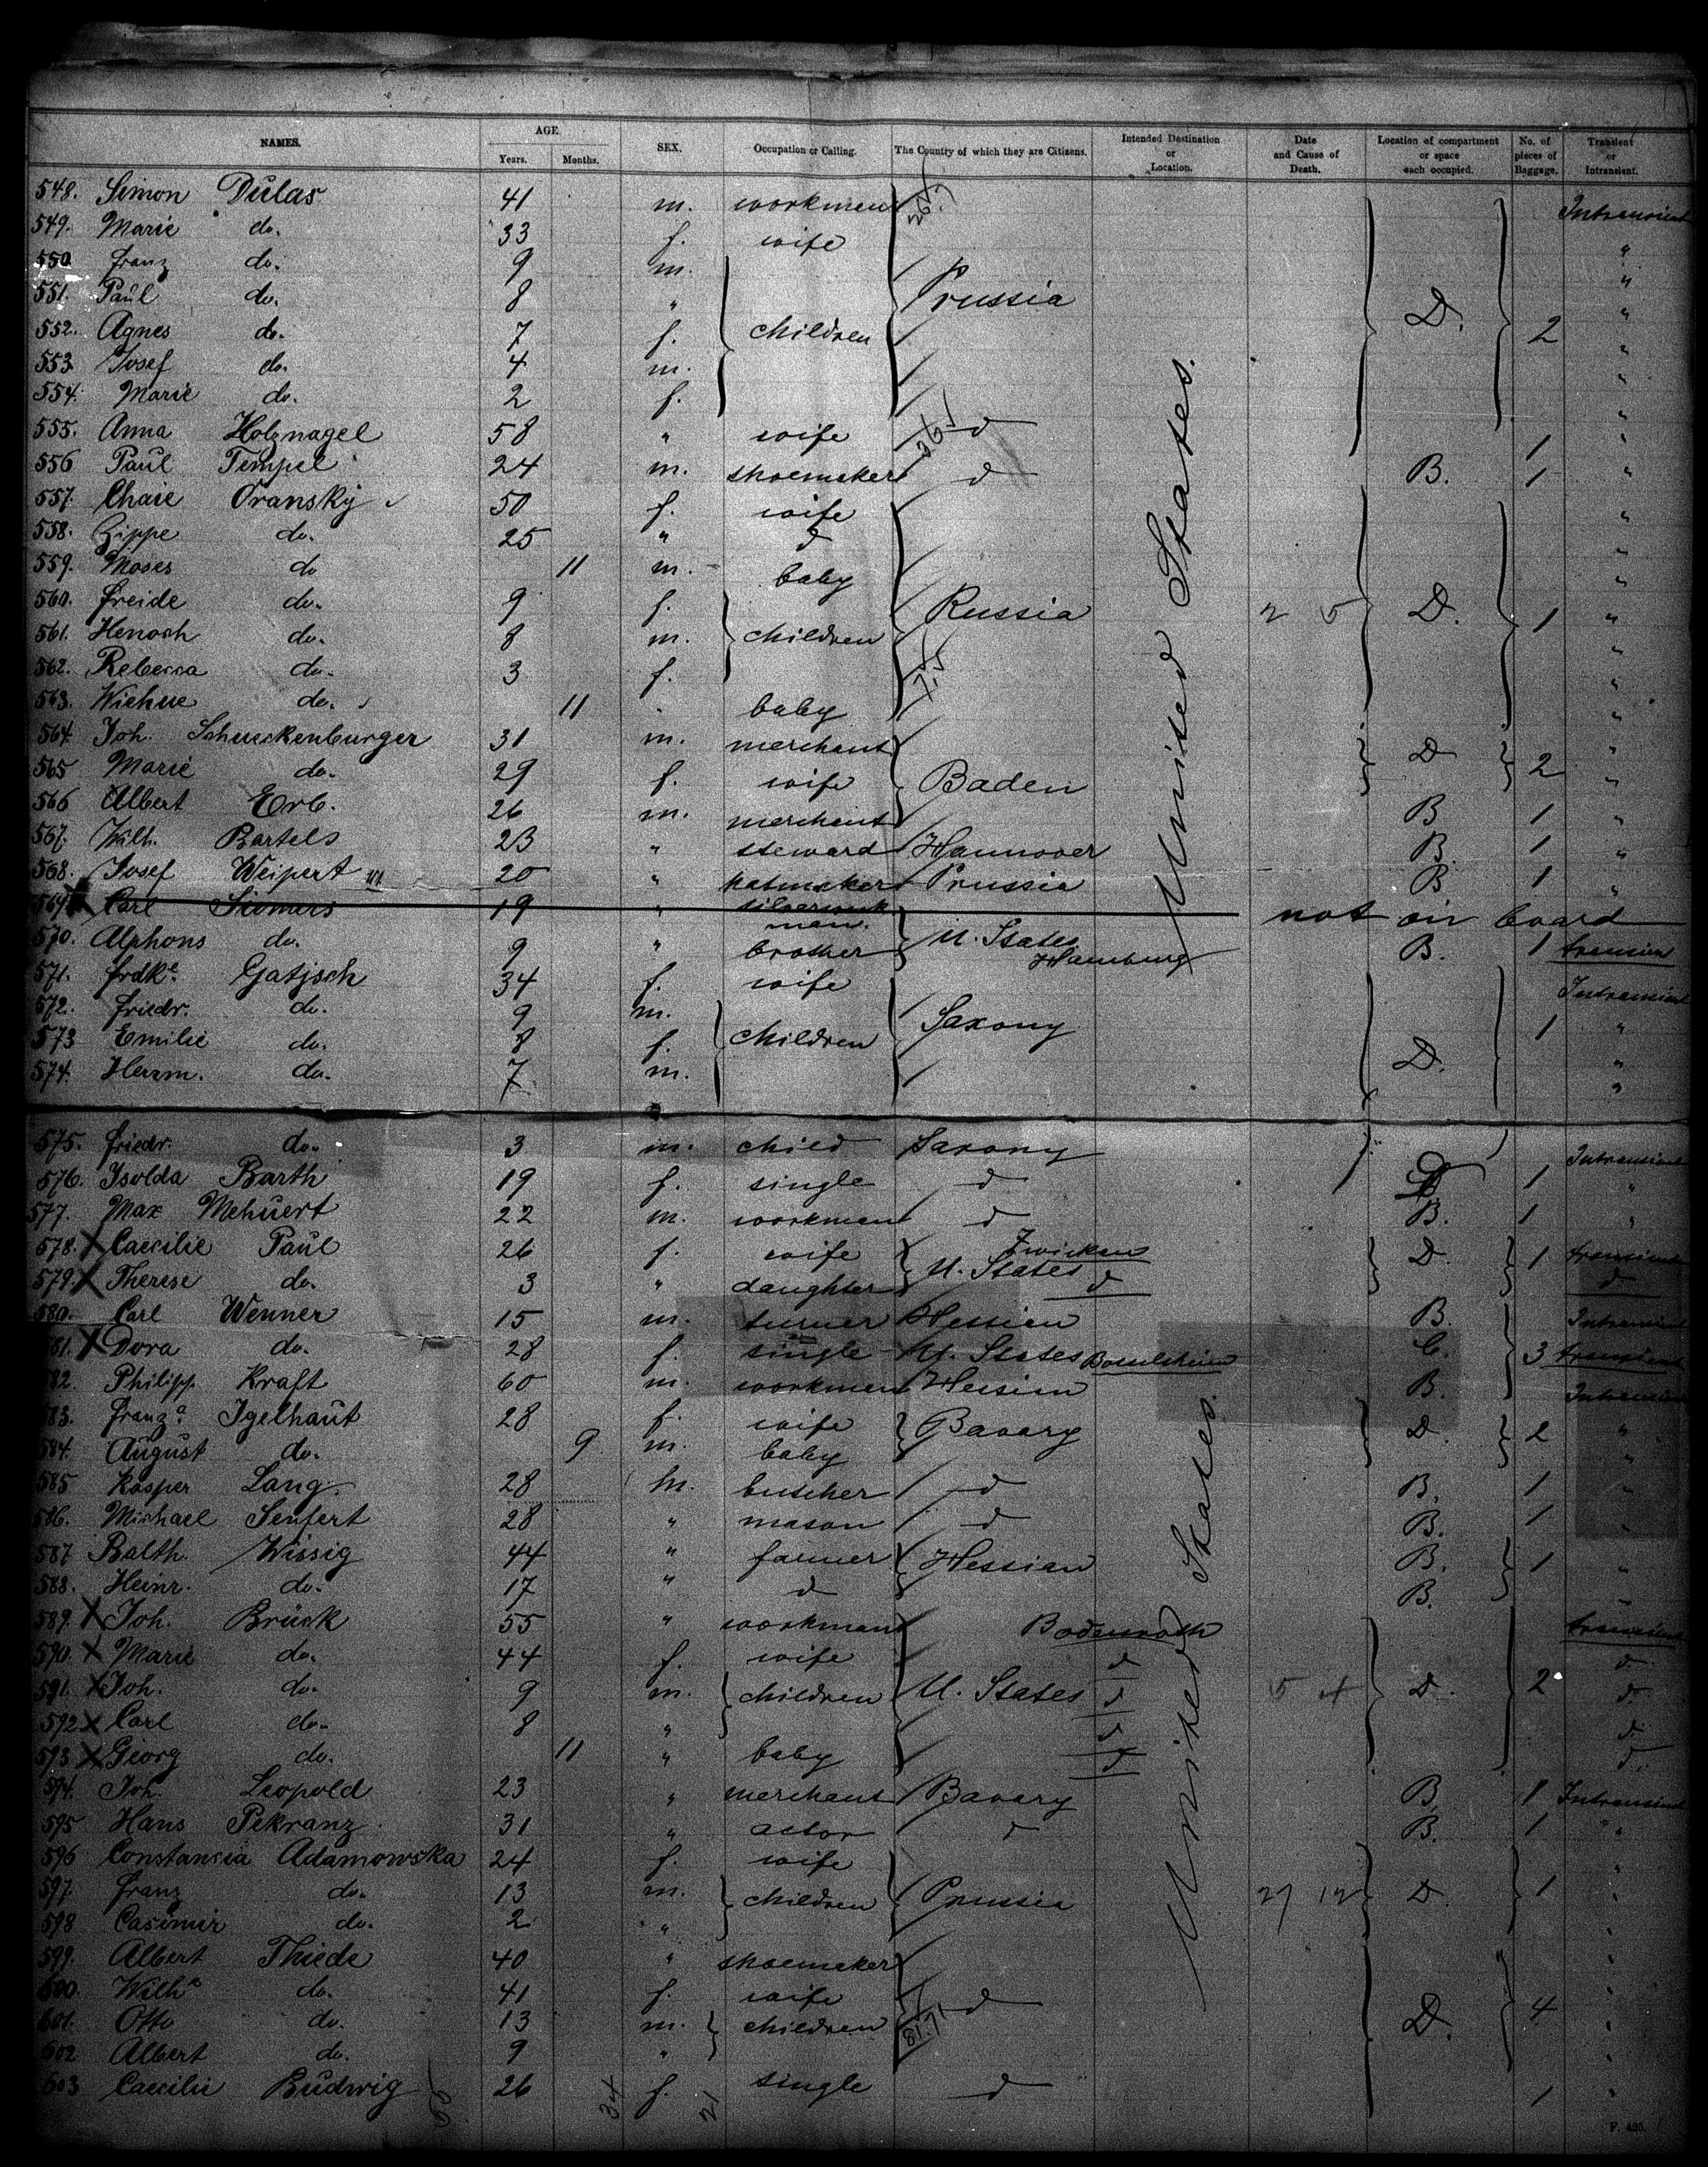 NAMES. AGE. Years. Months. SEX. Occupation or Calling. The Country of which they are Citizens. Intended Destination or Location. Date and Cause of Death. Location of compartment or space each occupied. No. of pieces of Baggage. Transient or Intransient.
548. Simon Dulas 41 m. workmen Intransient
549. Marie do. 33 f. wife "
550 Franz do. 9 m. "
551. Paul do. 8 " Prussia "
552. Agnes do. 7 f. children D. 2 "
553 Josef do. 4 m. "
554. Marie do. 2 f. "
555. Anna Holznagel 58 " wife d 1 "
556 Paul Tempel 24 m. shoemaker d B. 1 "
557. Chaie Oransky 50 f. wife "
558. Zippe do. 25 " d "
559. Moses do 11 m. baby "
560. Freide do. 9 f. Russia 2 5 D. 1 "
561. Henoch do. 8 m. children "
562. Rebecca do. 3 f. "
563. Wichne do. 11 baby "
564. Joh. Schneckenburger 31 m. merchant D 2 "
565 Marie do. 29 f. wife Baden "
566 Albert Erb. 26 m. merchant B 1 "
567. Wilh. Bartels 23 " steward Hannover B. 1 "
568. Josef Weipert 20 " hatmaker Prussia B 1 "
569 Carl Siemers 19 " not on board
570. Alphons do. 9 " brother U. States Hamburg B. 1 transient
571. Frdke. Gatzsch 34 f. wife Intransient
572. Friedr. do. 9 m. Saxony "
573 Emilie do. 8 f. children 1 "
574. Herrm. do. 7 m. D. "
United States.
575. Friedr. do. 3 m. child Saxony Intransient
576. Isolda Barth 19 f. single d D 1 "
577. Max Mehnert 22 m. workmen d B. 1 "
578. X Caecilie Paul 26 f. wife U. States Zwickau D 1 transient
579. X Therese do. 3 " daughter d d
580. Carl Wenner 15 m. turner Hessien B. Intransient
581. X Dora do. 28 f. single U. States C. 3 transient
582. Philipp Kraft 60 m. workmen Hessien B. Intransient
583. Franza. Igelhaut 28 f. wife Bavary D. 2 "
584. August do. 9 m. baby "
585 Kasper Lang. 28 m. butcher d B. 1 "
586. Michael Senfert 28 " mason d B. 1 "
587 Balth. Wissig 44 " farmer Hessian B. 1 "
588. Heinr. do. 17 " d B.
589. X Joh. Brück 55 " workmen Bodenroth transient
590. X Marie do. 44 f. wife d d
591. X Joh. do. 9 m. children U. States d 5 4 D. 2 d
592 X Carl do. 8 " d d.
593 X Georg do. 11 " baby d d.
594. Joh. Leopold 23 " merchant Bavary B 1 Intransient
595 Hans Pekranz 31 " actor d B. 1 "
596 Constancia Adamowska 24 f. wife "
597. Franz do. 13 m. children Prussia 27 12 D 1 "
598 Casimir do. 2 " "
599. Albert Thiede 40 " shoemaker "
600. Wilhe do. 41 f. wife d 4 "
601. Otto do. 13 m. children D. "
602 Albert do. 9 " "
603 Caecilie Budwig 26 f. single d 1 "
United States.
34 21
F. 425.